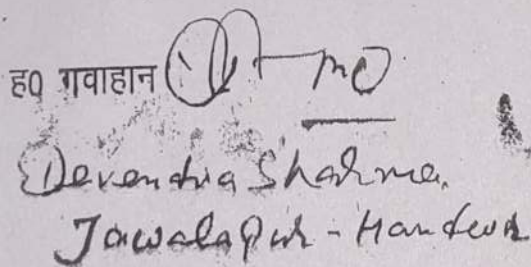 ह0 गवाहान
Devendra Sharma.
Jawalapur - Haridwar